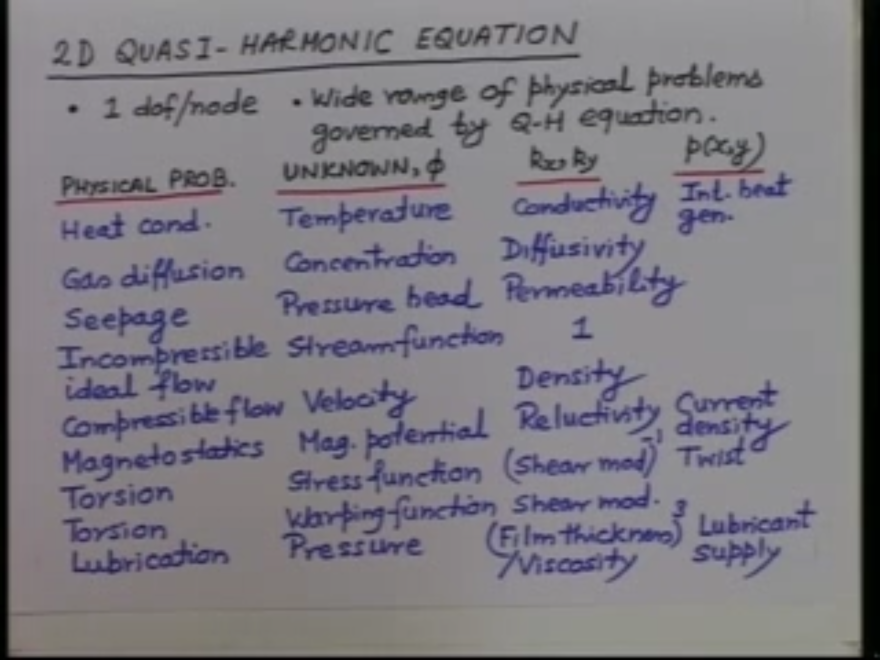 2D QUASI-HARMONIC EQUATION
• 1 dof/node • Wide range of physical problems
governed by Q-H equation.
PHYSICAL PROB. UNKNOWN, ϕ kx, ky p(x,y)
Heat cond. Temperature Conductivity Int. heat
gen.
Gas diffusion Concentration Diffusivity
Seepage Pressure head Permeability
Incompressible Streamfunction 1
ideal flow
Compressible flow Velocity Density
Magnetostatics Mag. potential Reluctivity Current
density
Torsion Stress function (Shear mod)⁻¹ Twist
Torsion Warping function Shear mod.
Lubrication Pressure (Film thickness)³ Lubricant
/Viscosity supply